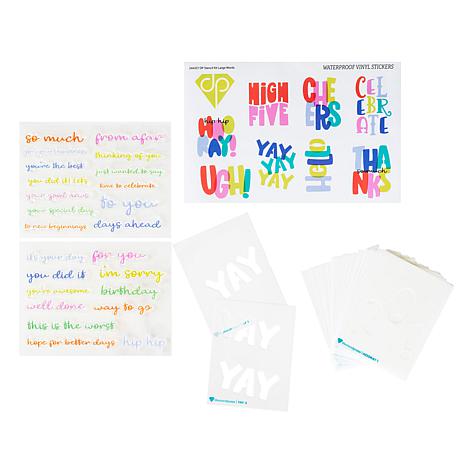 WATERPROOF VINYL STICKERS
dp
HIGH
FIVE
CHE
ERS
CEL
EBR
ATE
hip hip
HOO
RAY!
UGH!
YAY
YAY
YAY
Hello
THA
NKS
so much
so much
from afar
thinking of you
you're the best
just wanted to say
you did it! let's
time to celebrate
your good news
to you
your special day
to new beginnings
days ahead
it's your day
for you
you did it
i'm sorry
you're awesome
birthday
well done
way to go
this is the worst
hope for better days
hip hip
YAY
YAY
YAY